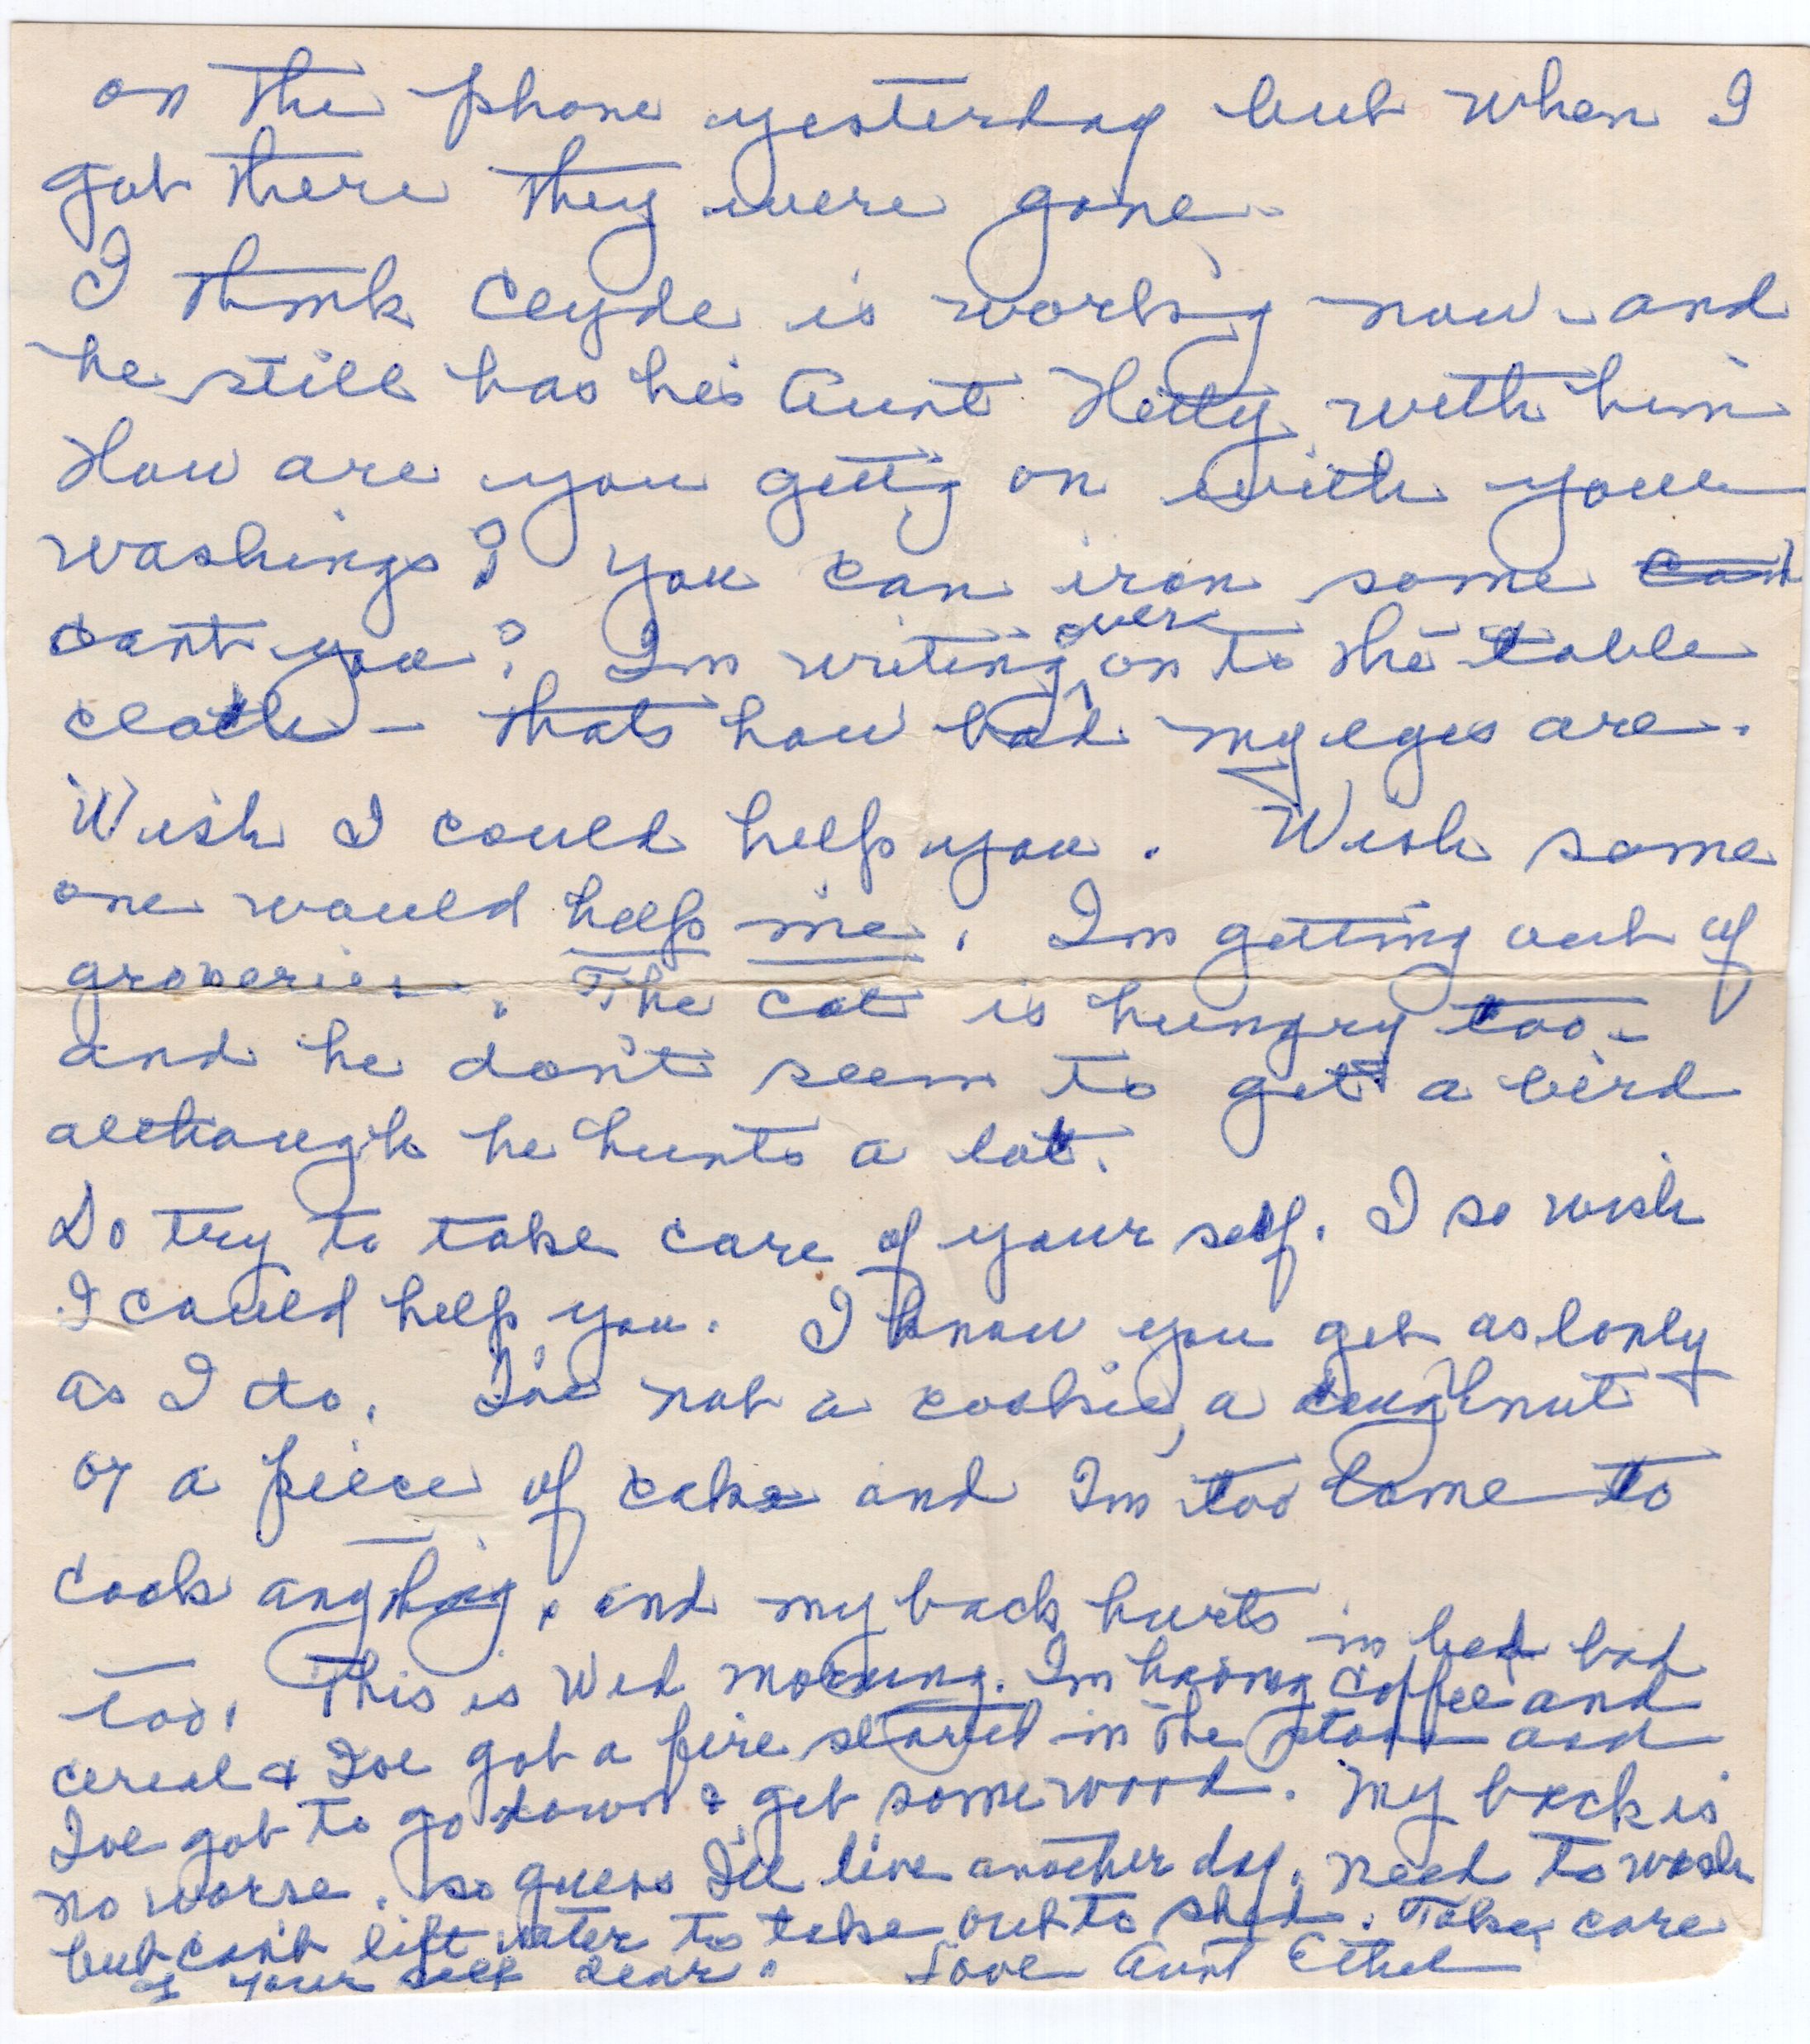 on the phone yesterday but when I
got there they were gone.
I think Clyde is workig now - and
he still has his Aunt Hetty with him
How are you gettig on with your
washings? You can iron some cant
cant you? Im writing over on to the table
cloth - thats how bad my eyes are.
Wish I could help you. Wish some
one would help me. Im getting out of
groceries. The cat is hungry too -
and he don't seem to get a bird
although he hunts a lot.
Do try to take care of your self. I so wish
I could help you. I know you get as lonly
as I do. I've not a cookie, a doughnut
or a piece of cake and Im too lame to
cook anything, and my back hurts in bed bad
too. This is Wed morning. Im having coffee and
cereal & I've got a fire started in the stove and
I've got to go down & get some wood. My back is
no worse. so guess I'll live another day. Need to wash
but can't lift water to take out to shed. Take care
of your self dear. Love Aunt Ethel